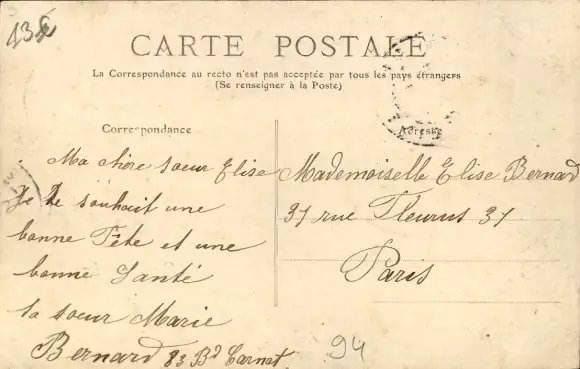 CARTE POSTALE
La Correspondance au recto n'est pas acceptée par tous les pays étrangers
(Se renseigner à la Poste)
Correspondance
Ma chère soeur Elise
Je te souhait une
bonne Fête et une
bonne Santé
ta soeur Marie
Bernard 83 Bd Carnot
Adresse
Mademoiselle Elise Bernard
37 rue Fleurus 37
Paris
94